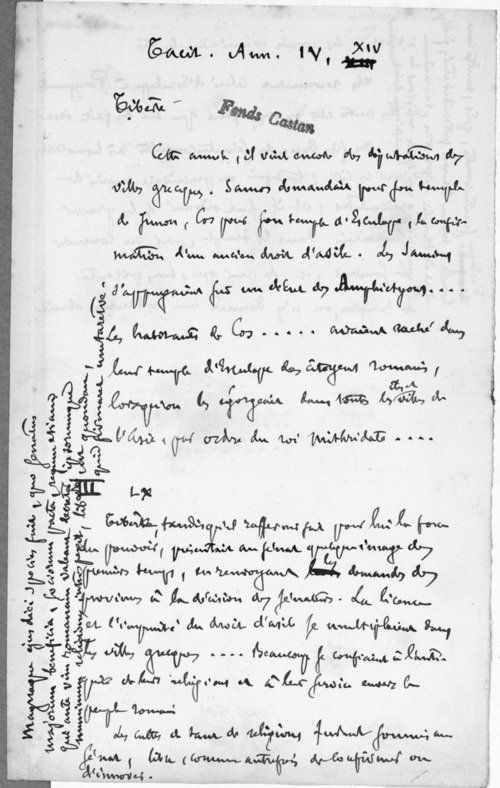 Tacit. Ann. IV, XIV
Tibère
Fonds Castan
Cette année, il vint encore des députations des
villes grecques. Samos demandait pour son temple
de Junon, Cos pour son temple d'Esculape, la confir-
mation d'un ancien droit d'asile. Les Samiens
s'appuyaient sur un décret des Amphictyons....
Les habitants de Cos ..... avaient caché dans
leur temple d'Esculape des citoyens romains,
lorsqu'on les égorgeait dans toutes les îles et villes de
l'Asie, par ordre du roi Mithridate ....
LX
Tibère, tandis qu'il raffermissait pour lui la force
du pouvoir, présentait au sénat quelque image des
premiers temps, en renvoyant les demandes des
provinces à la décision des sénateurs. La licence
et l'impunité du droit d'asile se multipliaient dans
les villes grecques .... Beaucoup se confiaient à l'anti-
quité de leurs religions et à leur service envers le
peuple romain
Les cultes et tant de religions furent soumis au
Sénat, libre, comme autrefois de confirmer ou
d'innover.
Magnaque ejus diei species fuit, quo senatus
majorum beneficia, sociorum pacta, regum etiam
qui ante vim romanam valuerant decreta, ipsorumque
numinum religiones introspexit, libero, ut quondam,
quid firmaret mutaretve.